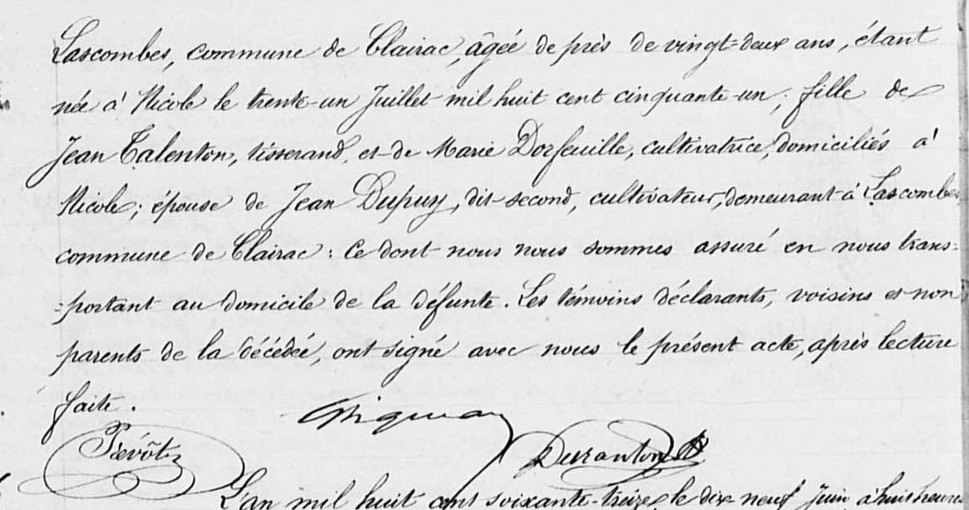 Lascombes, commune de Clairac, âgée de près de vingt=deux ans, étant
née à Nicole le trente-un Juillet mil huit cent cinquante-un; fille de
Jean Talenton, tisserand, et de Marie Dorfeuille, cultivatrice, domiciliés à
Nicole; épouse de Jean Dupuy, dit second, cultivateur, demeurant à Lascombes
commune de Clairac: Ce dont nous nous sommes assuré en nous trans=
=portant au domicile de la défunte. Les témoins déclarants, voisins et non
parents de la décédée, ont signé avec nous le présent acte, après lecture
faite.
Prévôt
Duranton
L'an mil huit cent soixante-treize, le dix neuf Juin à huit heures